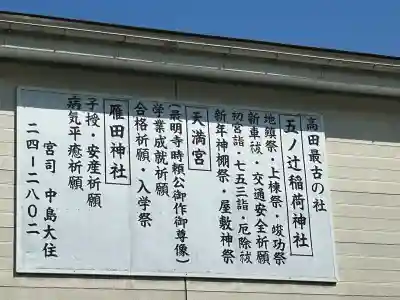 高田最古の社
五ノ辻稲荷神社
地鎮祭・上棟祭・竣功祭
新車祓・交通安全祈願
初宮詣・七五三詣・厄除祓
新年神棚祭・屋敷神祭
天満宮
(最明寺時頼公御作御尊像)
学業成就祈願
合格祈願・入学祭
雁田神社
子授・安産祈願
病気平癒祈願
宮司 中島大住
二四-二八〇二